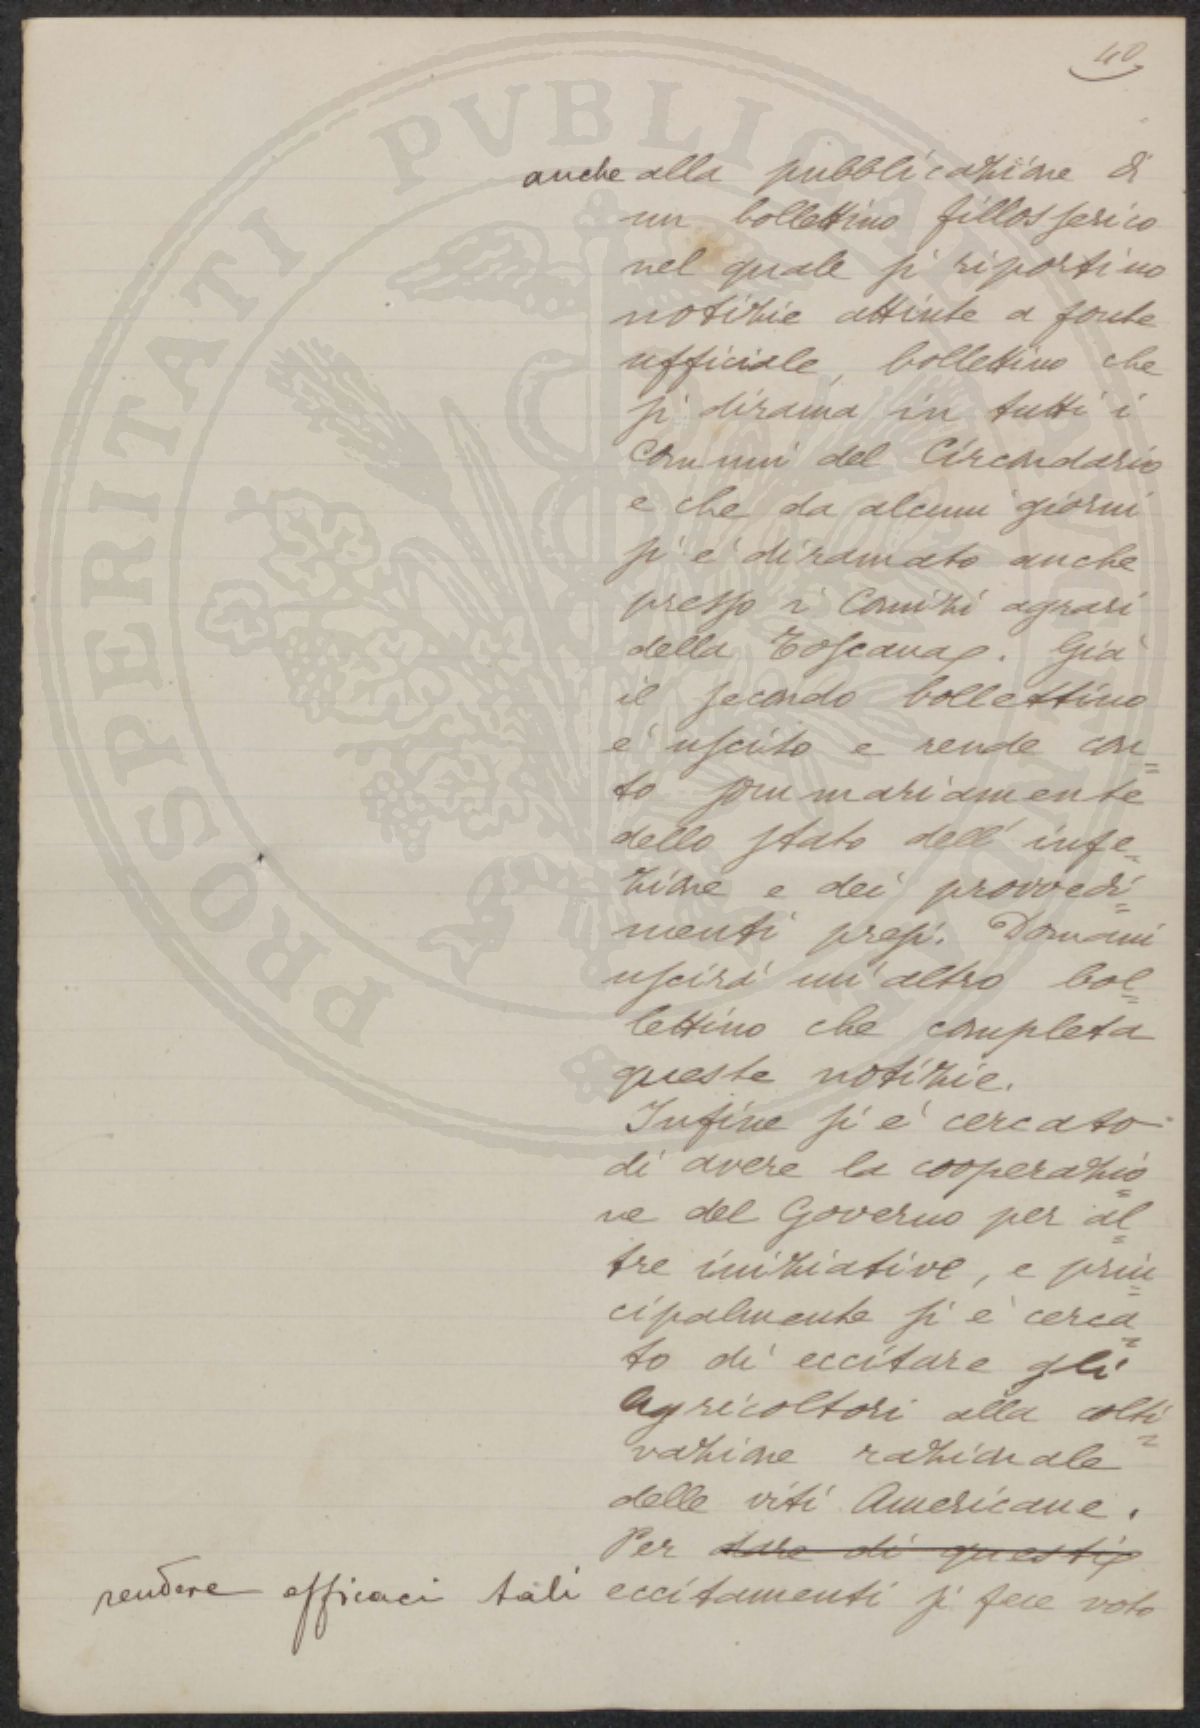 40
anche alla pubblicazione di
un bollettino fillosserico
nel quale si riportino
notizie attinte a fonte
ufficiale, bollettino che
si dirama in tutti i
Comuni del Circondario
e che da alcuni giorni
si è diramato anche
presso i Comizi agrari
della Toscana. Già
il secondo bollettino
è uscito e rende con=
to sommariamente
dello stato dell'infe=
zione e dei provvedi=
menti presi. Domani
uscirà un'altro bol=
lettino che completa
queste notizie.
Infine si è cercato
di avere la cooperazio=
ne del Governo per al=
tre iniziative, e prin=
cipalmente si è cerca=
to di eccitare gli
agricoltori alla colti=
vazione razionale
delle viti Americane.
Per dare di questi
rendere efficaci tali eccitamenti si fece voto
PROSPERITATI PVBLICAE